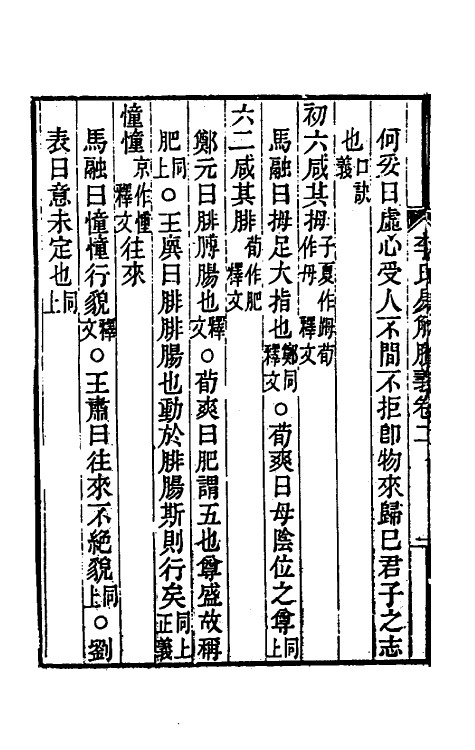 李氏易解賸義卷二
何妥曰虛心受人不間不拒卽物來歸巳君子之志
也口訣義
初六咸其拇子夏作䟢荀作母釋文
馬融曰拇足大指也鄭同釋文○荀爽曰母陰位之尊同上
六二咸其腓荀作肥釋文
鄭元曰腓膊腸也釋文○荀爽曰肥謂五也尊盛故稱
肥同上○王廙曰腓腓腸也動於腓腸斯則行矣同上正義
憧憧京作㣫釋文往來
馬融曰憧憧行貌釋文○王肅曰往來不絕貌同上○劉
表曰意未定也同上